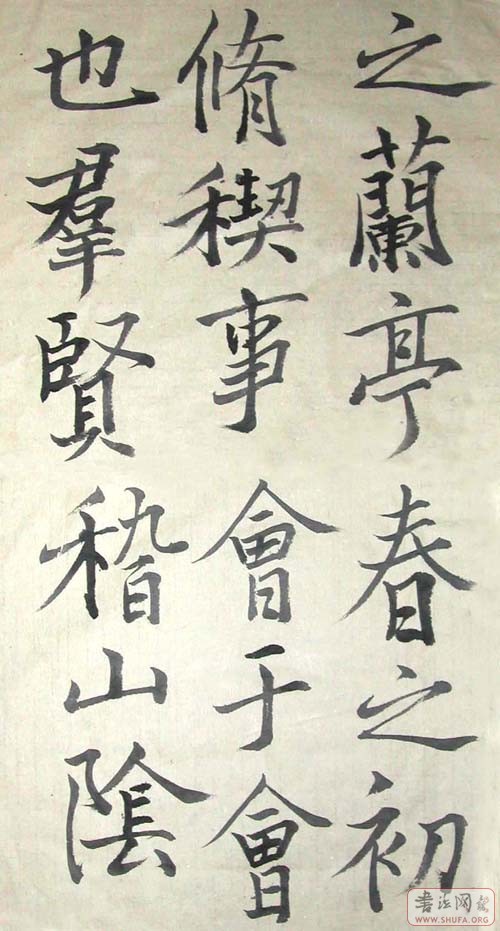 之蘭亭春之初
脩稧事會于會
也羣賢稽山陰
书法网
WWW.SHUFA.ORG